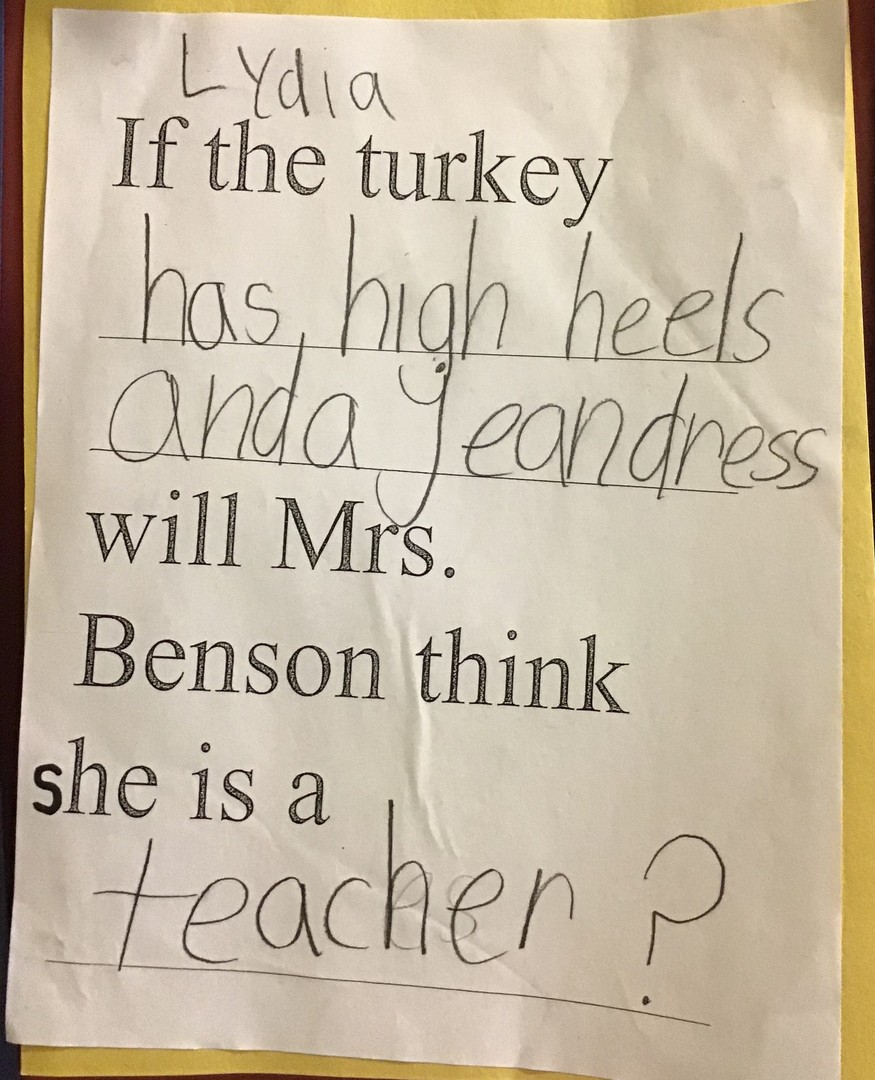 Lydia
If the turkey
has high heels
and a jean dress
will Mrs.
Benson think
she is a
teacher?